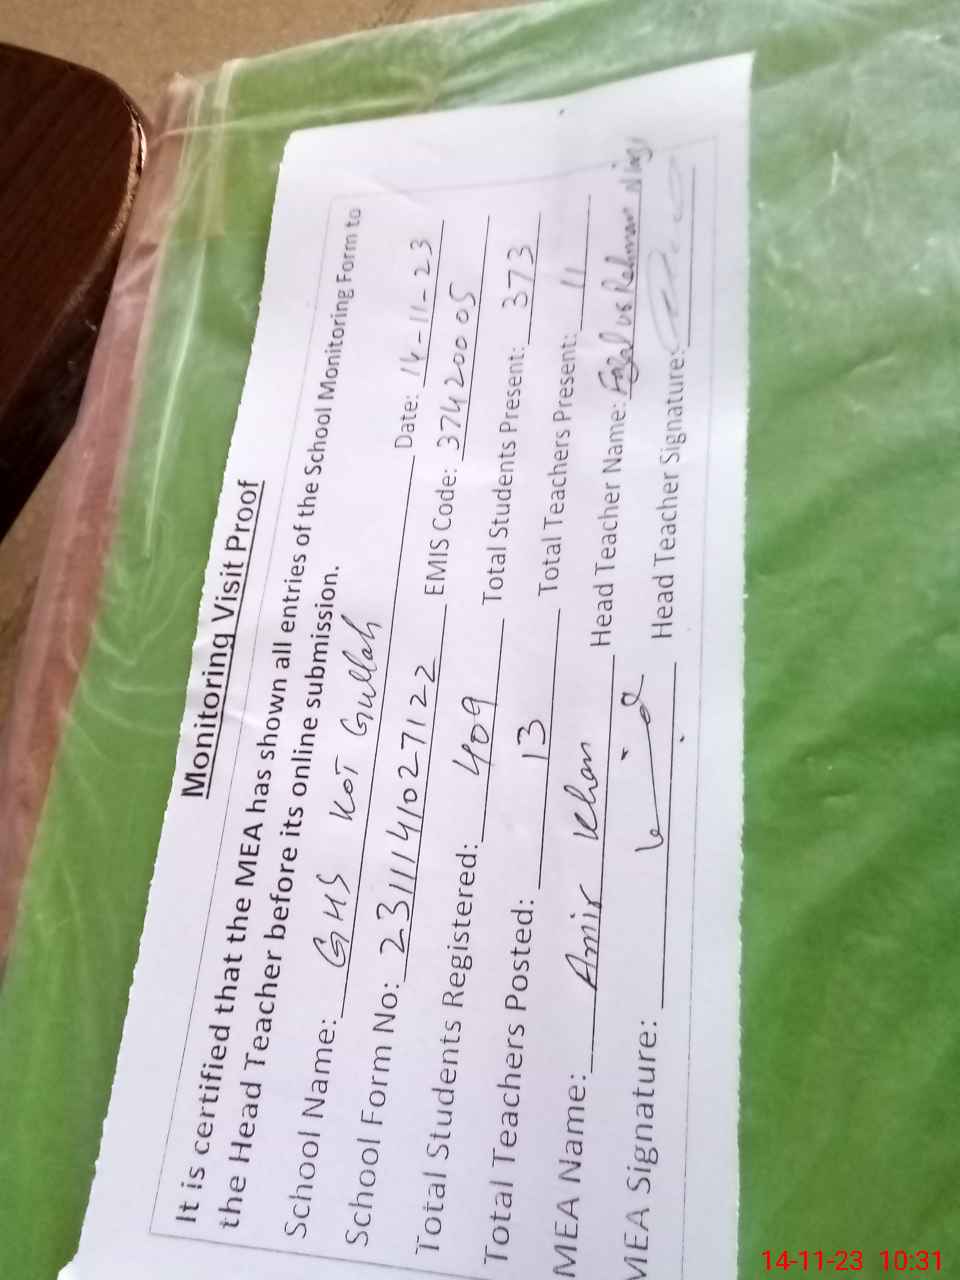 Monitoring Visit Proof
It is certified that the MEA has shown all entries of the School Monitoring Form to
the Head Teacher before its online submission.
School Name: GHS KOT Gullah Date: 14-11-23
School Form No: 2311141027122 EMIS Code: 37420005
Total Students Registered: 409 Total Students Present: 373
Total Teachers Posted: 13 Total Teachers Present: 11
MEA Name: Amir Khan Head Teacher Name: Fazal ur Rehman Niazi
MEA Signature: Head Teacher Signature:
14-11-23 10:31